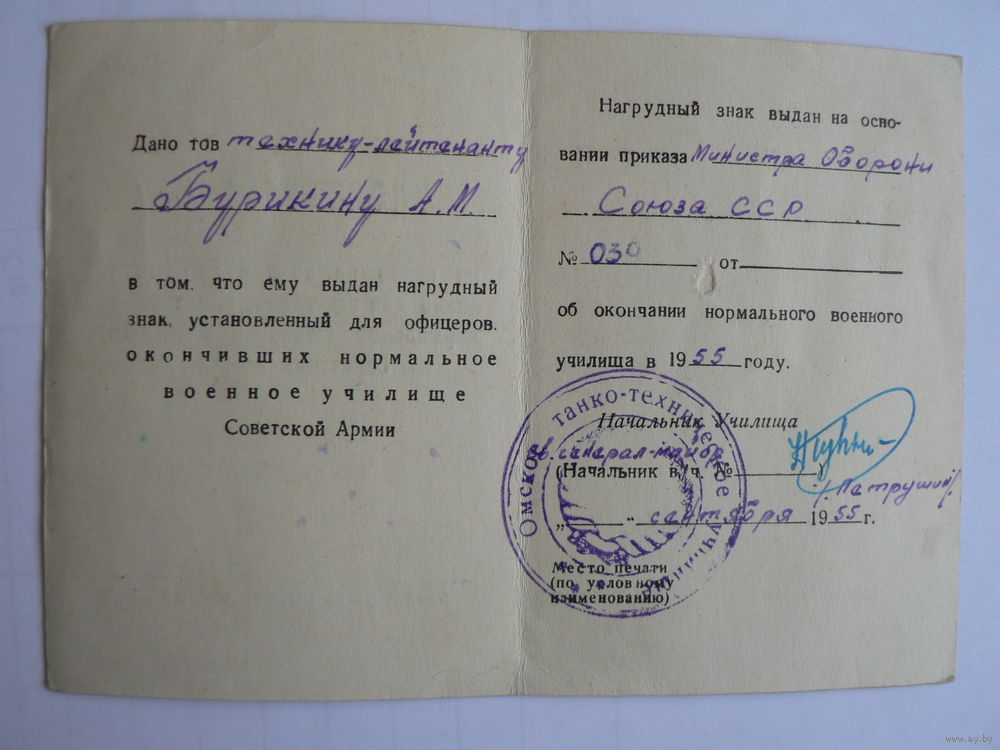 Дано тов технику-лейтенанту
Бурикину А.М.
в том, что ему выдан нагрудный
знак, установленный для офицеров,
окончивших нормальное
военное училище
Советской Армии
Нагрудный знак выдан на осно-
вании приказа Министра Оборони
Союза ССР
№ 030 от
об окончании нормального военного
училиша в 1955 году.
Начальник Училища
генерал-майор
(Начальник в/ч. № )
/Петрушин/.
„ " сентября 1955 г.
Место печати
(по условному
наименованию)
Омское танко-техническое училище
www.ay.by